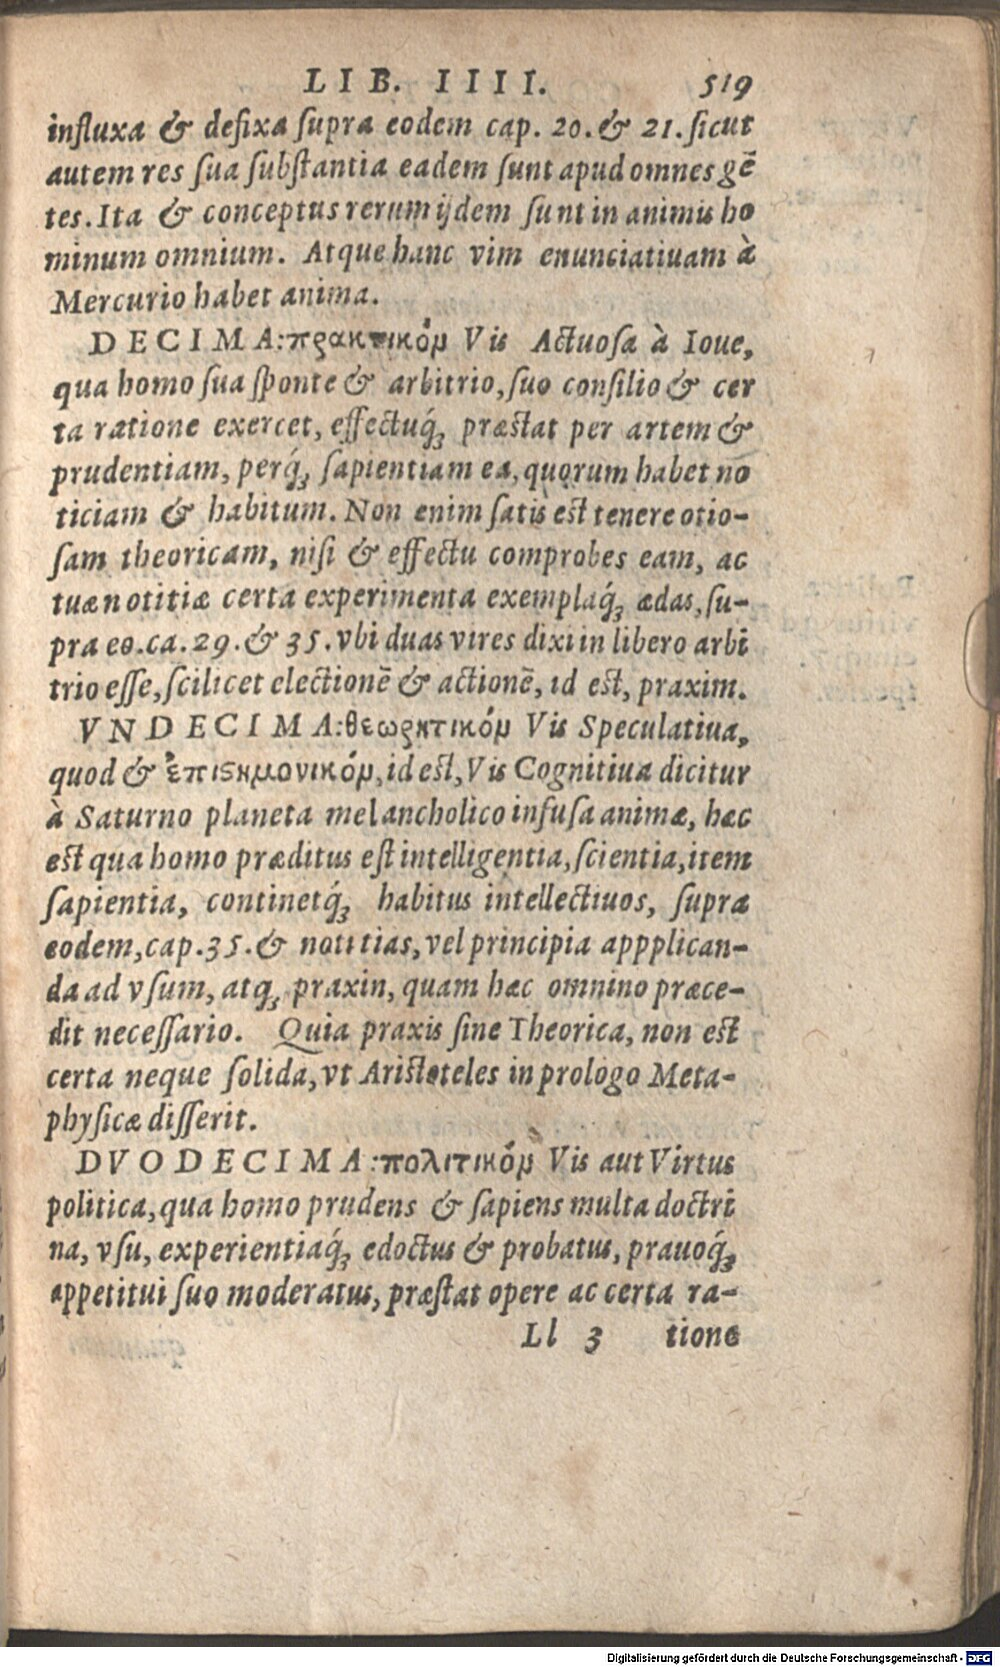 LIB. IIII. 519
influxa & defixa ſupra eodem cap. 20. & 21. ſicut
autem res ſua ſubſtantia eadem ſunt apud omnes gē
tes. Ita & conceptus rerum ijdem ſunt in animis ho
minum omnium. Atque hanc vim enunciatiuam à
Mercurio habet anima.
DECIMA: πρακτικόμ Vis Actuoſa à Ioue,
qua homo ſua ſponte & arbitrio, ſuo conſilio & cer
ta ratione exercet, effectuq́ꝫ præſtat per artem &
prudentiam, perq́ꝫ ſapientiam ea, quorum habet no
ticiam & habitum. Non enim ſatis eſt tenere otio-
ſam theoricam, niſi & effectu comprobes eam, ac
tuæ notitiæ certa experimenta exemplaq́ꝫ ædas, ſu-
pra eo. ca. 29. & 35. vbi duas vires dixi in libero arbi
trio eſſe, ſcilicet electionē & actionē, id eſt, praxim.
VNDECIMA: θεωρητικόμ Vis Speculatiua,
quod & ἐπιϛημονικόμ, id eſt, Vis Cognitiua dicitur
à Saturno planeta melancholico infuſa animæ, hæc
eſt qua homo præditus eſt intelligentia, ſcientia, item
ſapientia, continetq́ꝫ habitus intellectiuos, ſupra
eodem, cap. 35. & notitias, vel principia appplican-
da ad vſum, atqꝫ praxin, quam hæc omnino præce-
dit neceſſario. Quia praxis ſine Theorica, non eſt
certa neque ſolida, vt Ariſtoteles in prologo Meta-
phyſicæ diſſerit.
DVODECIMA: πολιτικόμ Vis aut Virtus
politica, qua homo prudens & ſapiens multa doctri
na, vſu, experientiaq́ꝫ edoctus & probatus, prauoq́ꝫ
appetitui ſuo moderatus, præſtat opere ac certa ra-
Ll 3 tione
Digitalisierung gefördert durch die Deutsche Forschungsgemeinschaft - DFG